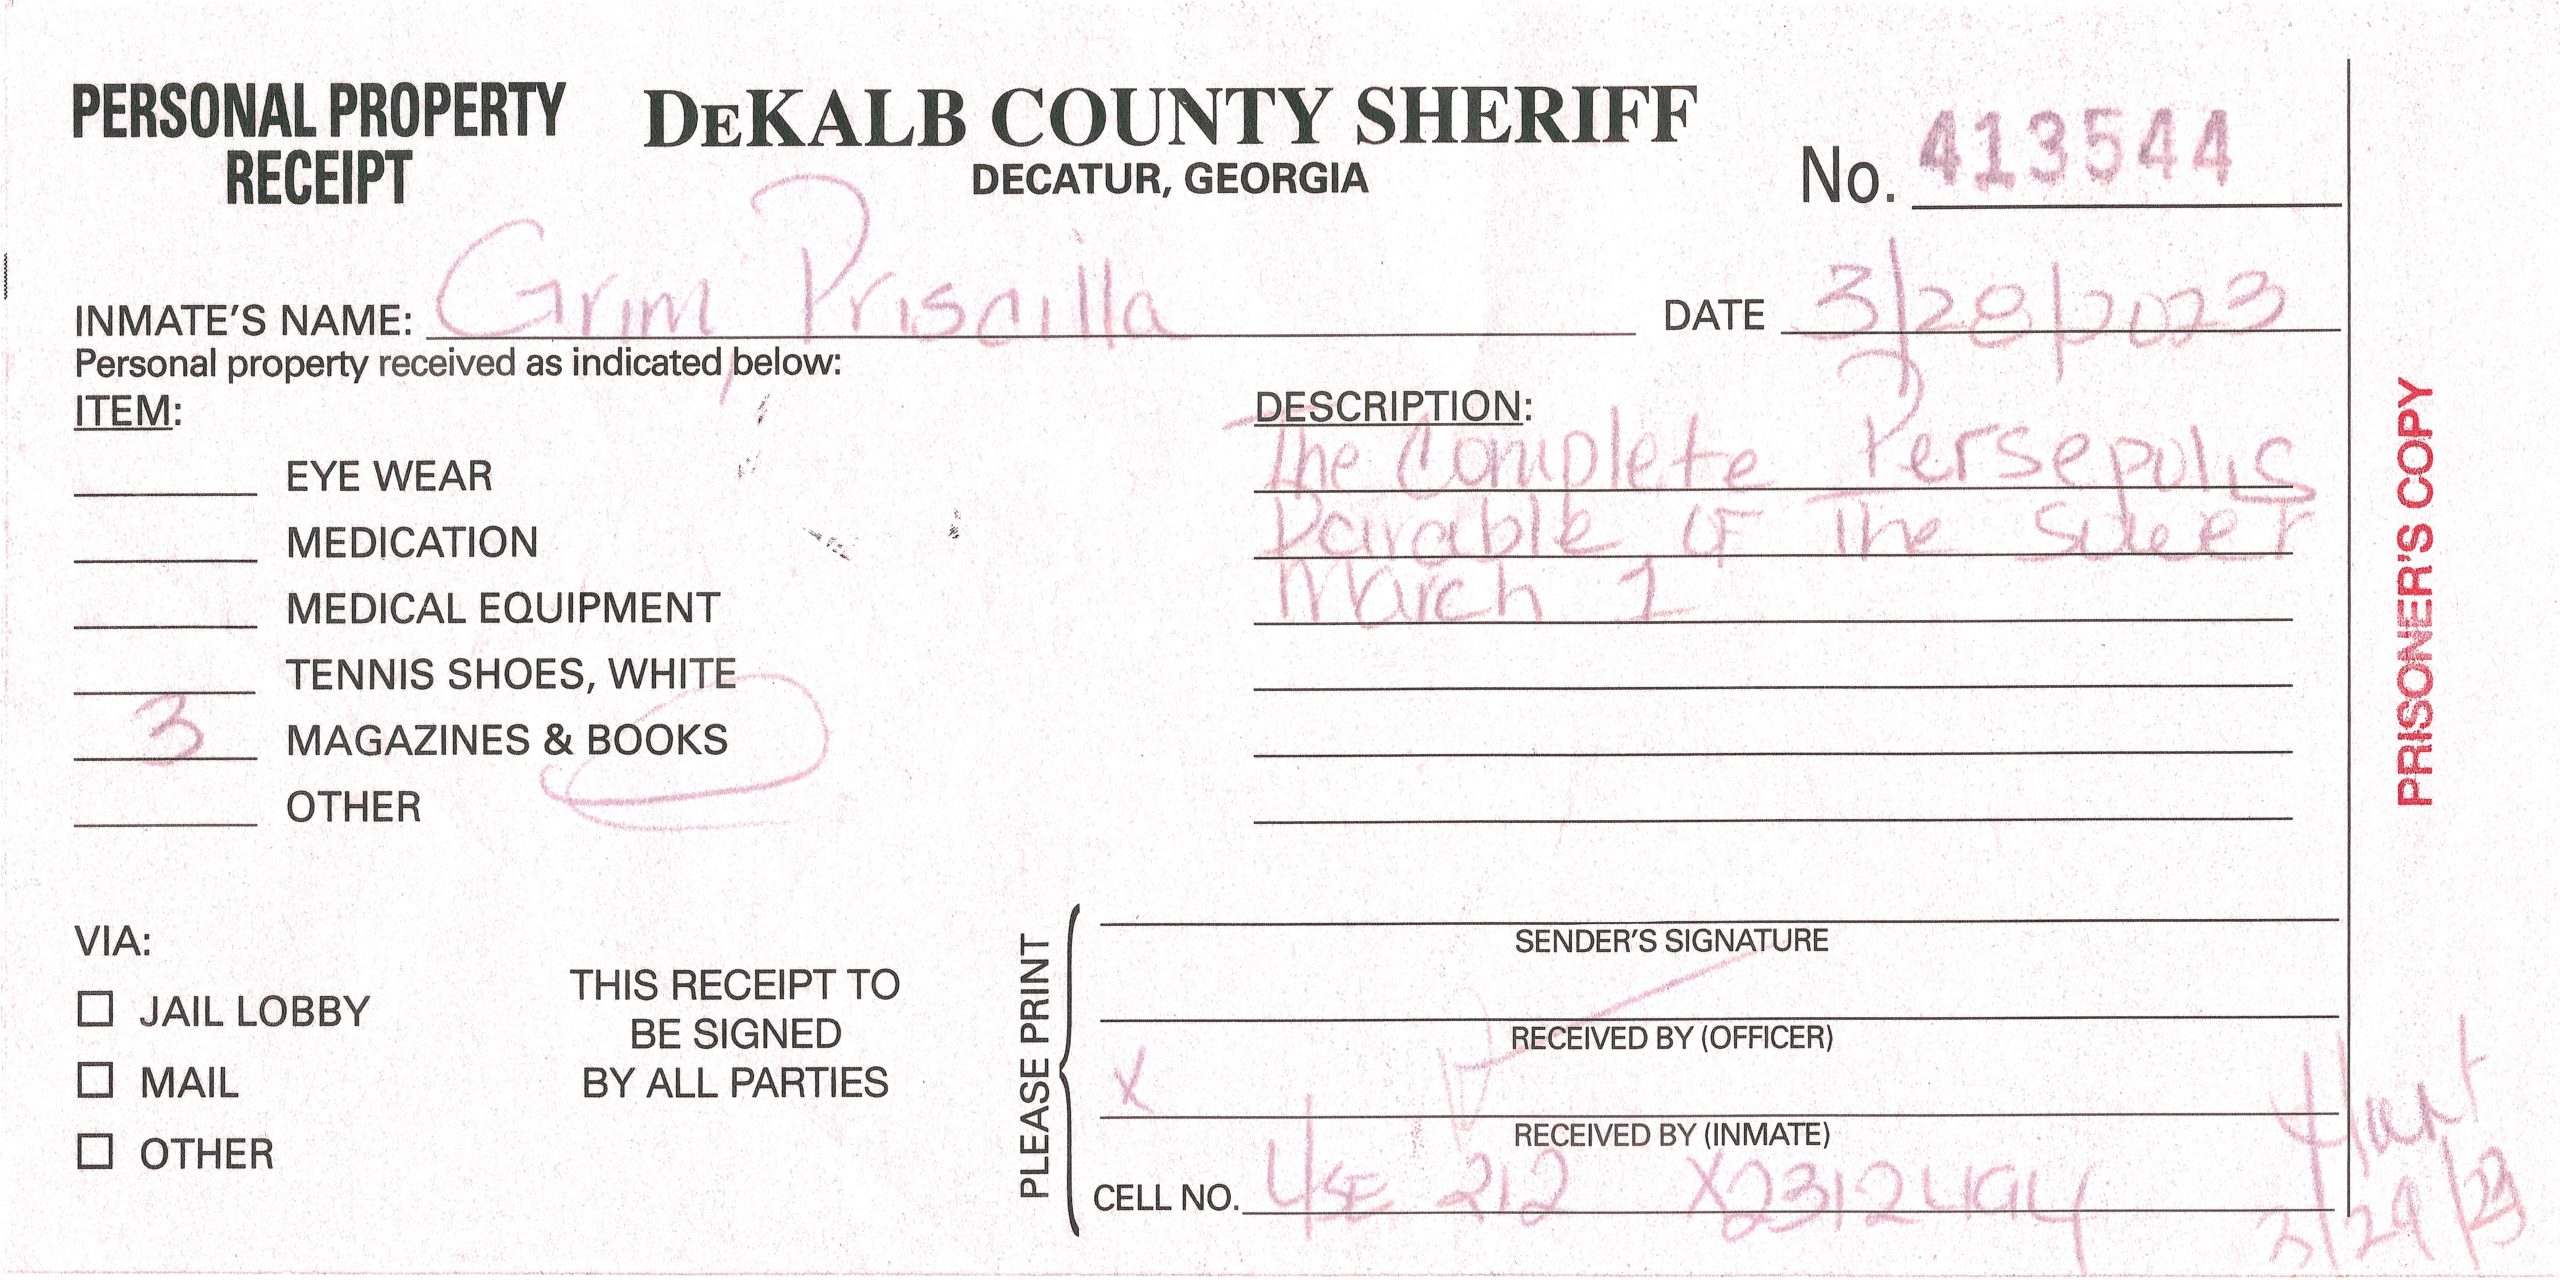 PERSONAL PROPERTY
RECEIPT
DEKALB COUNTY SHERIFF
DECATUR, GEORGIA
No. 413544
INMATE'S NAME: Grim, Priscilla
DATE 3/28/2023
Personal property received as indicated below:
ITEM:
EYE WEAR
MEDICATION
MEDICAL EQUIPMENT
TENNIS SHOES, WHITE
3 MAGAZINES & BOOKS
OTHER
DESCRIPTION:
The Complete Persepolis
Parable of The
March 1
PRISONER'S COPY
VIA:
JAIL LOBBY
MAIL
OTHER
THIS RECEIPT TO
BE SIGNED
BY ALL PARTIES
PLEASE PRINT
SENDER'S SIGNATURE
RECEIVED BY (OFFICER)
X
RECEIVED BY (INMATE)
CELL NO. 4SE 212
Hart
3/29/23